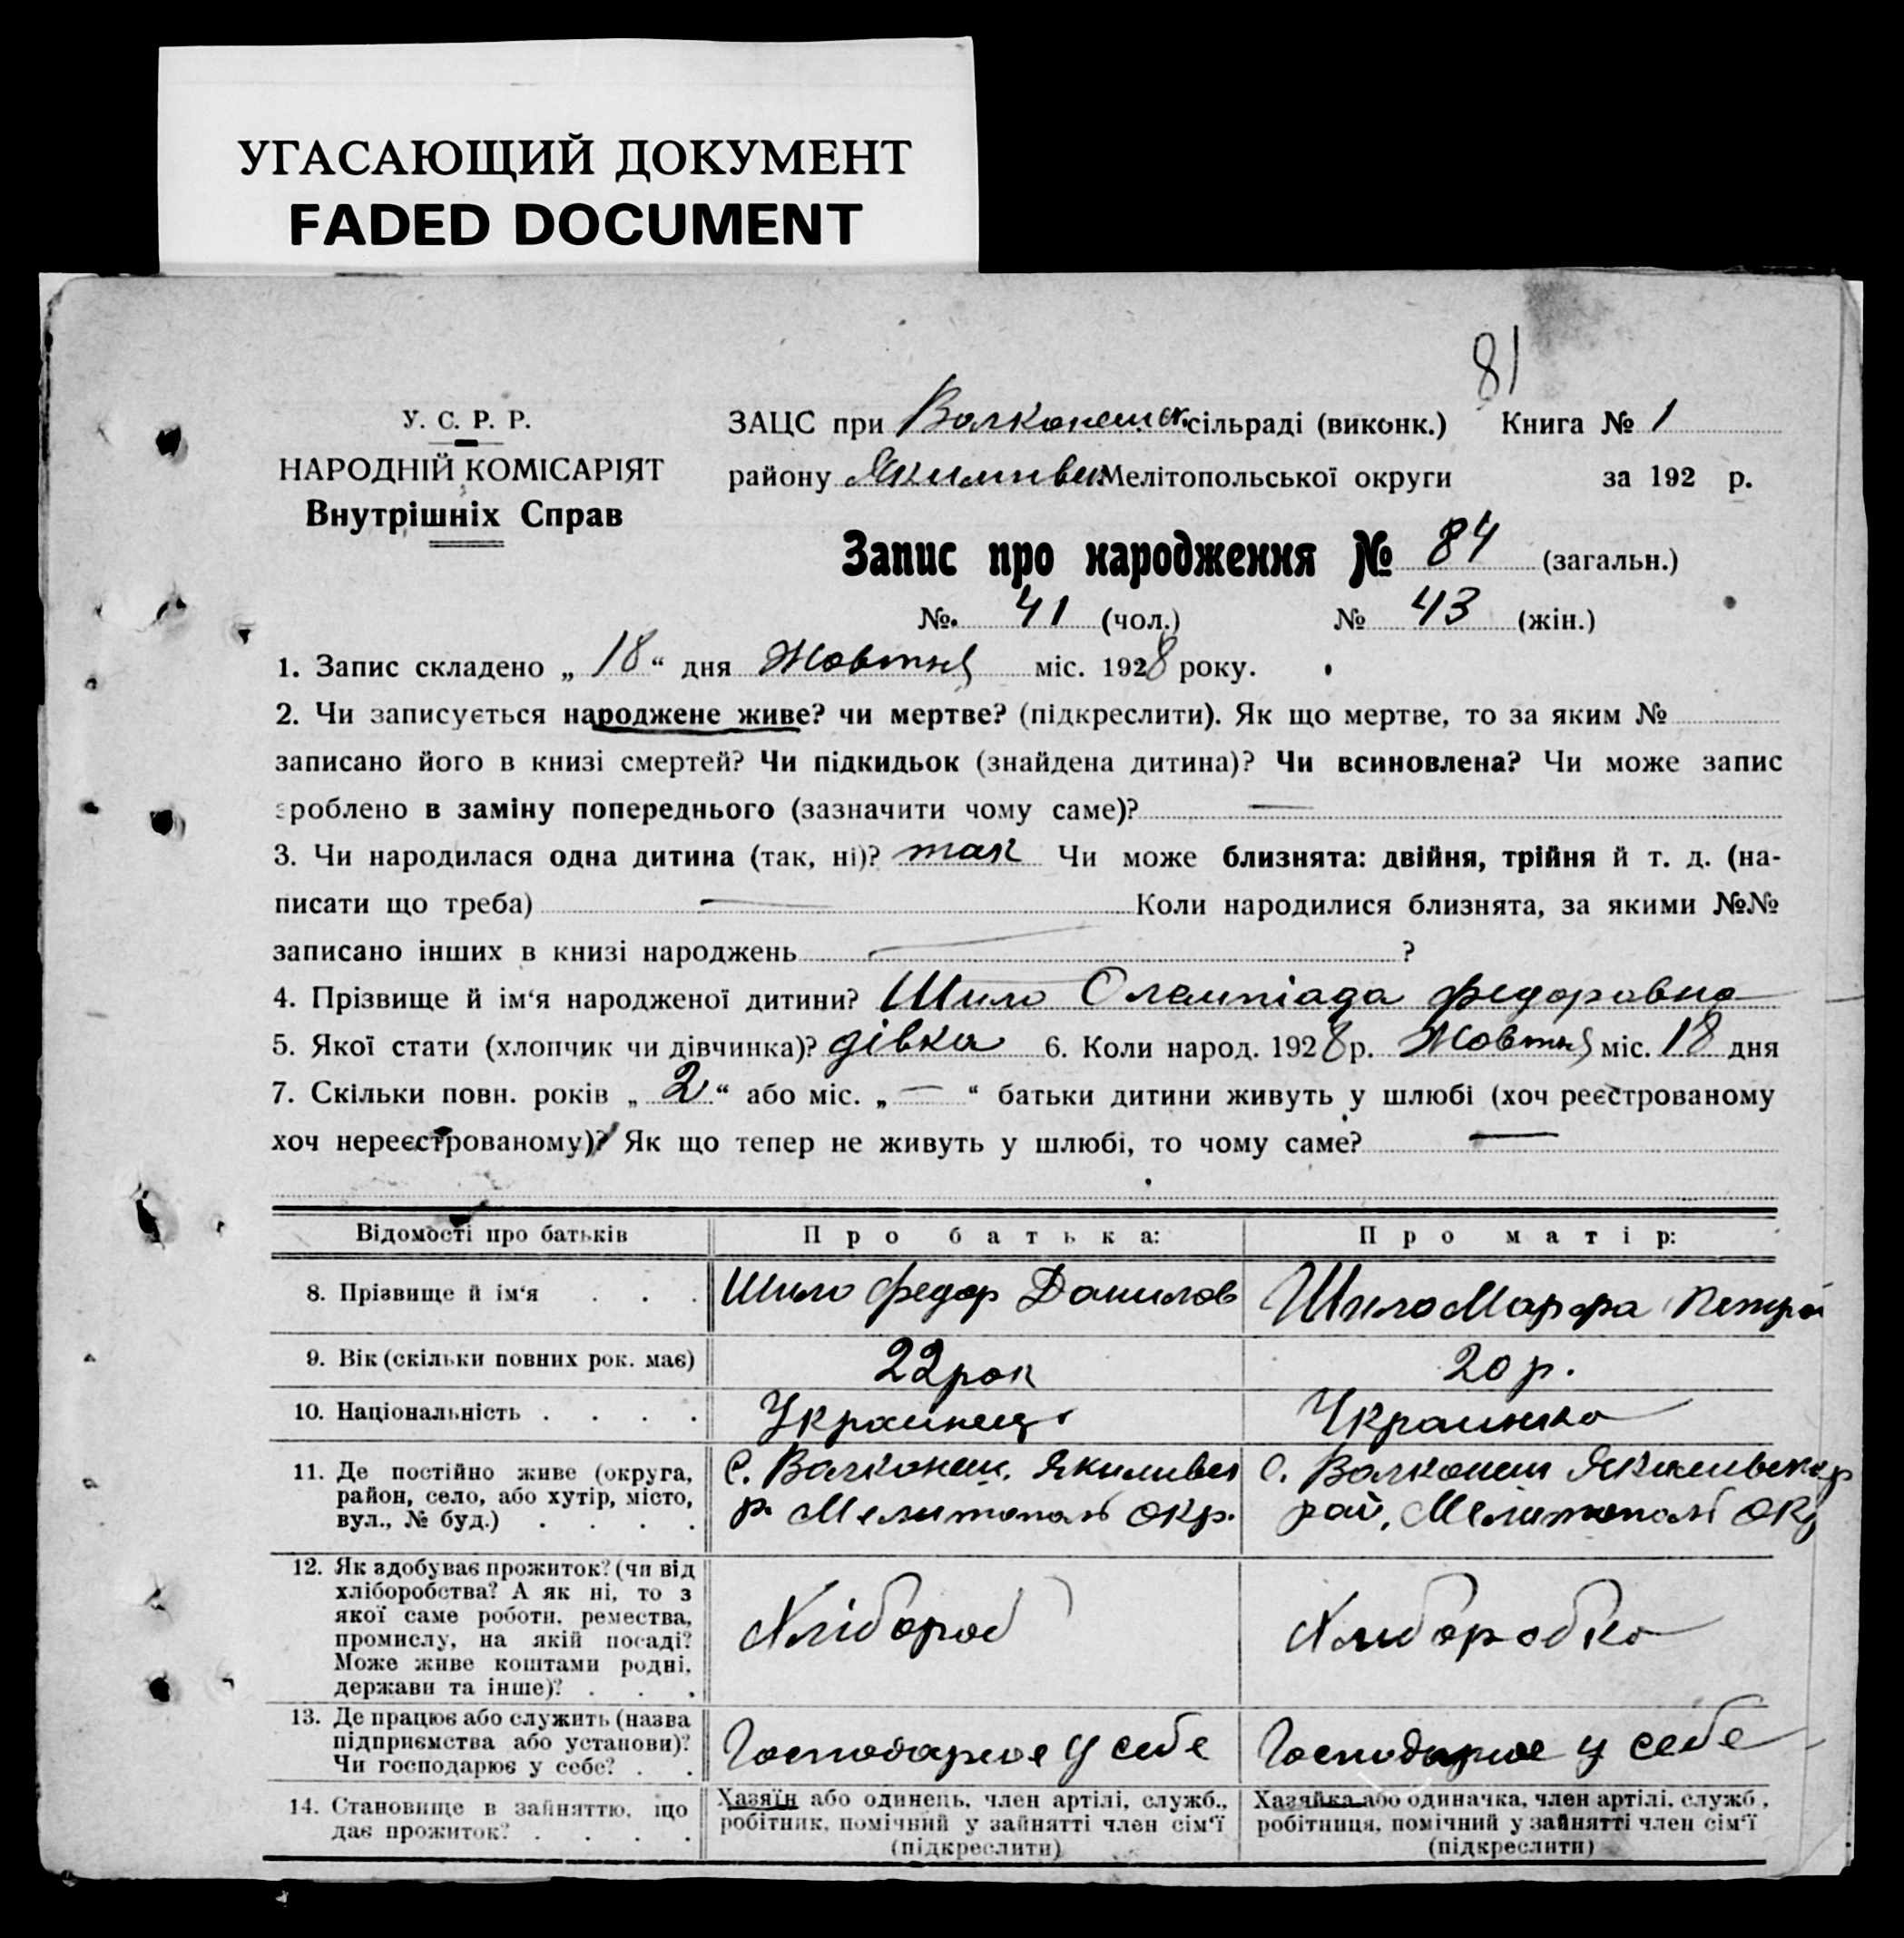 УГАСАЮЩИЙ ДОКУМЕНТ
FADED DOCUMENT
81
У. С. Р. Р.
НАРОДНІЙ КОМІСАРІЯТ
Внутрішніх Справ
ЗАЦС при Волконешск. сільраді (виконк.) Книга № 1
району Якимивск Мелітопольської округи за 192 р.
Запис про народження № 84 (загальн.)
№ 41 (чол.) № 43 (жін.)
1. Запис складено „ 18 “ дня Жовтня міс. 1928 року.
2. Чи записується народжене живе? чи мертве? (підкреслити). Як що мертве, то за яким №
записано його в книзі смертей? Чи підкидьок (знайдена дитина)? Чи всиновлена? Чи може запис
зроблено в заміну попереднього (зазначити чому саме)? —
3. Чи народилася одна дитина (так, ні)? так Чи може близнята: двійня, трійня й т. д. (на-
писати що треба) — Коли народилися близнята, за якими №№
записано інших в книзі народжень — ?
4. Прізвище й ім‘я народженої дитини? Шило Олемпіада Федоровна
5. Якої стати (хлопчик чи дівчинка)? дівка 6. Коли народ. 1928 р. Жовтня міс. 18 дня
7. Скільки повн. років „ 2 “ або міс. „ — “ батьки дитини живуть у шлюбі (хоч реєстрованому
хоч нереєстрованому)? Як що тепер не живуть у шлюбі, то чому саме? —
Відомості про батьків Про батька: Про матір:
8. Прізвище й ім‘я . . . Шило Федор Данилов Шило Марфа Петров
9. Вік (скільки повних рок. має) 22 рок 20 р.
10. Національність . . . . Украинец Украинка
11. Де постійно живе (округа, с. Волконеш. Якимивск с. Волконеш Якимивск р
район, село, або хутір, місто, р. Мелитополь окр. рай, Мелитополь окр
вул., № буд.) . . . .
12. Як здобуває прожиток? (чи від
хліборобства? А як ні, то з
якої саме роботи, ремества, Хлібороб Хлиборобка
промислу, на якій посаді?
Може живе коштами родні,
держави та інше)? . . .
13. Де працює або служить (назва
підприємства або установи)? Господарює у себе Господарює у себе
Чи господарює у себе? . .
14. Становище в зайняттю, що Хазяїн або одинець, член артілі, служб., Хазяйка або одиначка, член артілі, служб.,
дає прожиток? . . . . робітник, помічний у зайнятті член сім‘ї робітниця, помічний у зайнятті член сім‘ї
(підкреслити) (підкреслити)